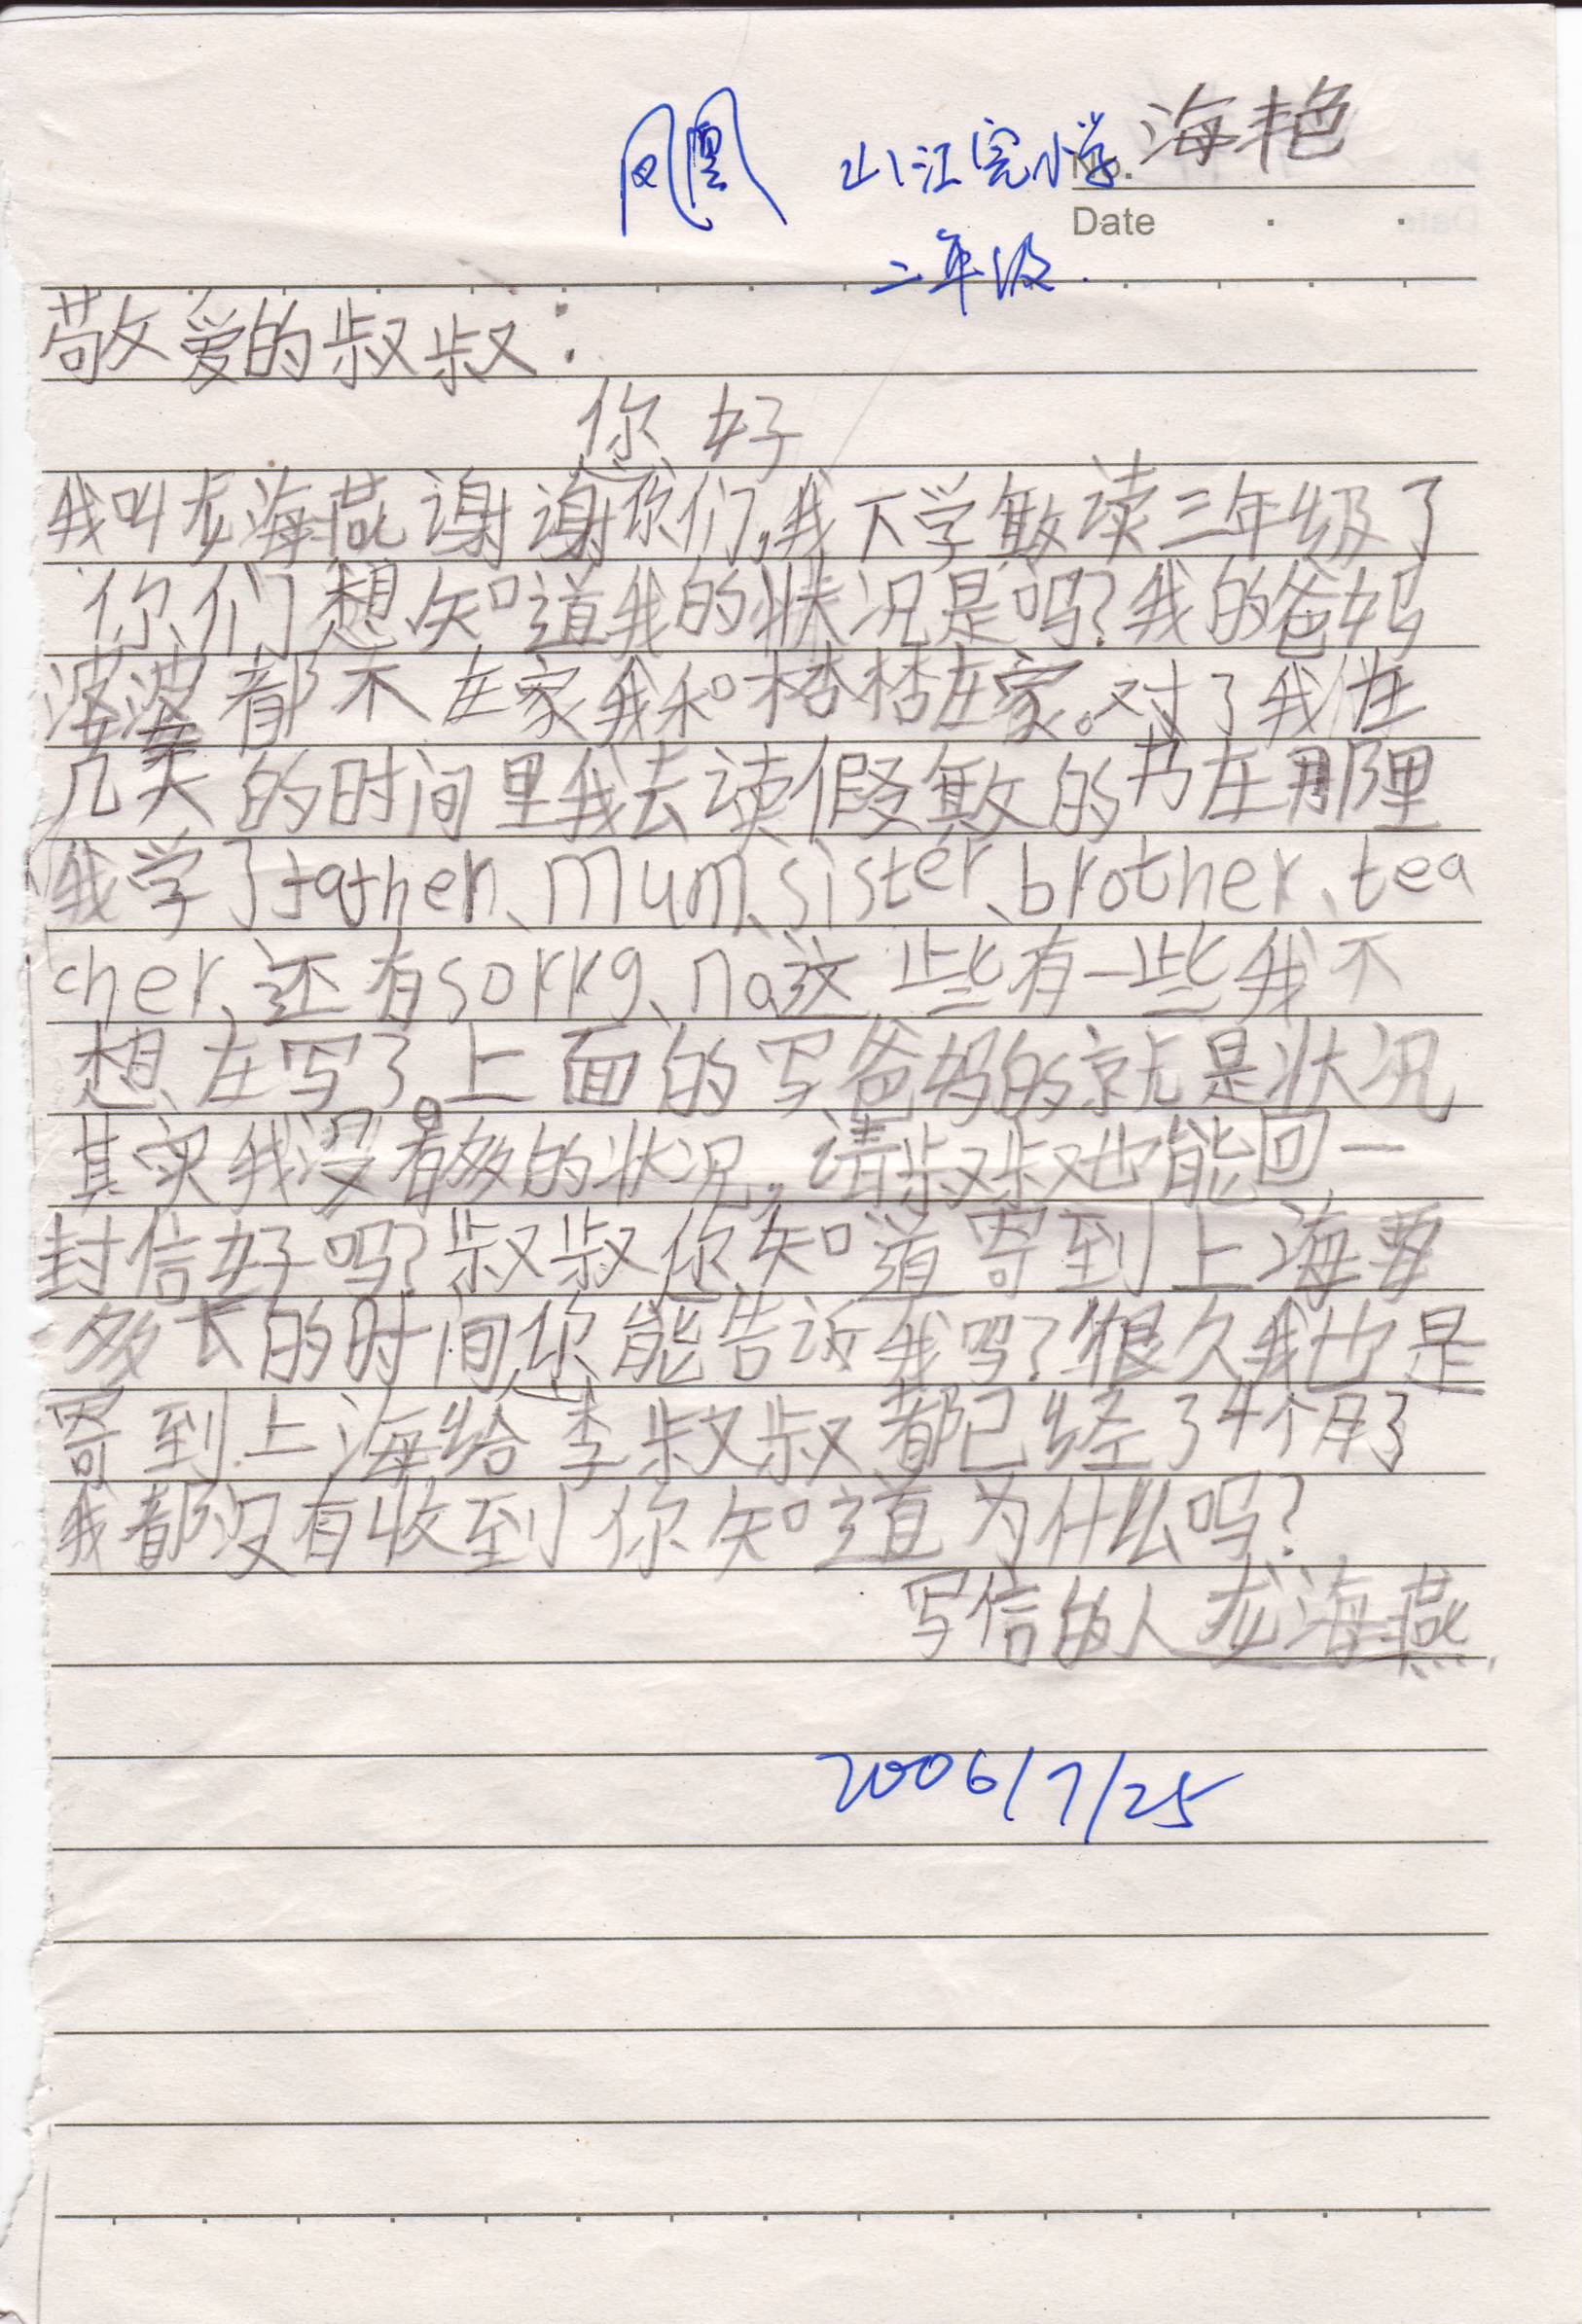 凤凰 山江完小学 海艳
No.
Date
二年级
敬爱的叔叔:
你好
我叫龙海燕谢谢您们,我下学期读三年级了
你们想知道我的状况是吗?我的爸妈
婆婆都不在家我和楂楂在家。对了我在
几天的时间里我去读假期的书在那里
我学了father、mum、sister、brother、tea
cher、还有sorry、na这些有一些我不
想在写了。上面的写爸妈的就是状况
其实我没有多的状况,请叔叔也能回一
封信好吗?叔叔您知道寄到上海要
多长的时间您能告诉我吗?很久我也是
寄到上海给李叔叔都已经了4个月了
我都没有收到你知道为什么吗?
写信的人龙海燕
2006/7/25